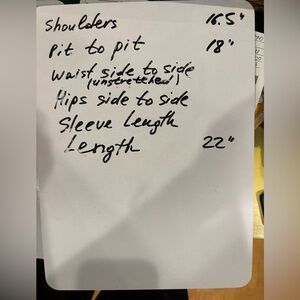 Shoulders 16.5"
Pit to pit 18"
Waist side to side
(unstretched)
Hips side to side
Sleeve Length
Length 22"